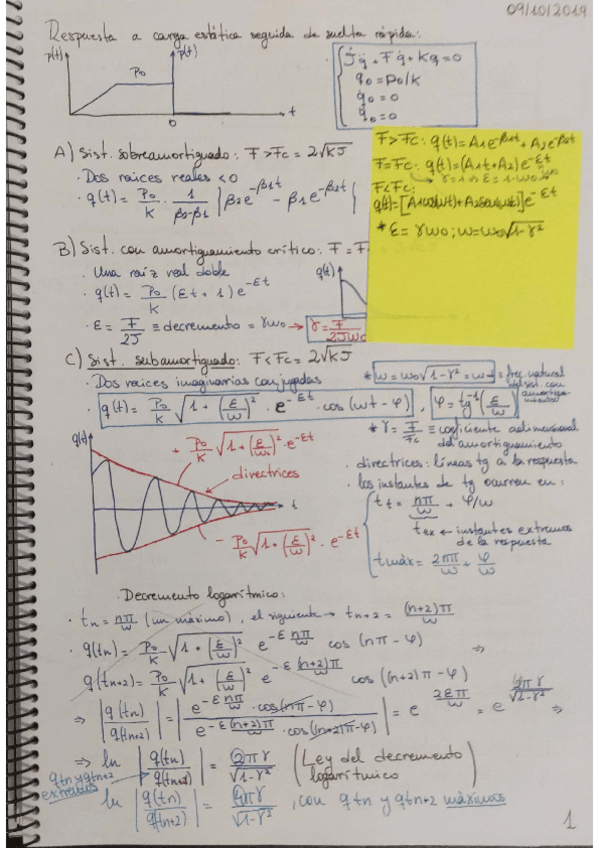 09/10/2019
Respuesta a carga estática seguida de suelta rápida:
p(t) p(t)
P₀
t
0
Jq̈ + Fq̇ + Kq = 0
q₀ = P₀/K
q̇₀ = 0
q̈₀ = 0
F>Fc: q(t) = A₁e^-β₁t + A₂e^-β₂t
F=Fc: q(t) = (A₁t+A₂)e^-εt
F<Fc:
q(t) = [A₁cos(ωt)+A₂sen(ωt)]e^-εt
* ε = γω₀ ; ω = ω₀√1-γ²
A) Sist. sobreamortiguado: F > Fc = 2√KJ
· Dos raíces reales <0
· q(t) = P₀/K · 1/(β₂-β₁) |β₂e^-β₁t - β₁e^-β₂t|
B) Sist. con amortiguamiento crítico: F = F
· Una raíz real doble
q(t)
· q(t) = P₀/K (εt + 1) e^-εt
· ε = F/2J ≡ decremento = γω₀ → γ = F/2Jω₀
C) Sist. subamortiguado: F < Fc = 2√KJ
· Dos raíces imaginarias conjugadas
* ω = ω₀√1-γ² = frec. natural del sist. con amortiguamiento
· q(t) = P₀/K √1+(ε/ω)² · e^-εt · cos(ωt - φ) , φ = tg⁻¹(ε/ω)
* γ = F/Fc ≡ coeficiente adimensional del amortiguamiento
q(t)
+ P₀/K √1+(ε/ω)² · e^-εt
directrices
t
- P₀/K √1+(ε/ω)² · e^-εt
· directrices: líneas tg a la respuesta
· los instantes de tg ocurren en:
t_t = nπ/ω + φ/ω
t_ex ← instantes extremos de la respuesta
t_máx = 2nπ/ω + φ/ω
Decremento logarítmico:
· t_n = nπ/ω (un máximo), el siguiente → t_n+2 = (n+2)π/ω
· q(t_n) = P₀/K √1+(ε/ω)² e^-ε nπ/ω cos(nπ - φ) ⇒
q(t_n+2) = P₀/K √1+(ε/ω)² e^-ε (n+2)π/ω cos((n+2)π - φ)
⇒ |q(t_n)/q(t_n+2)| = |e^-ε nπ/ω · cos(nπ-φ) / e^-ε (n+2)π/ω · cos((n+2)π-φ)| = e^2επ/ω = e^2πγ/√1-γ² ⇒
⇒ ln |q(t_n)/q(t_n+1)| = 2πγ/√1-γ² (Ley del decremento logarítmico)
q_tn y q_tn+2 extremos
ln |q(t_n)/q(t_n+2)| = 4πγ/√1-γ² , con q_tn y q_tn+2 máximos
1